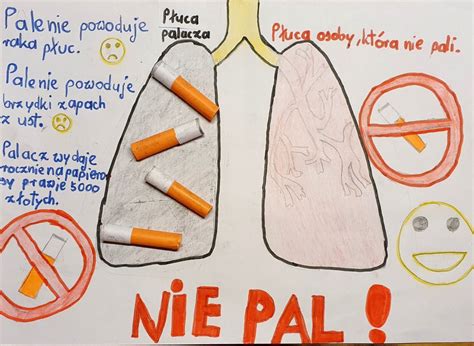 Palenie powoduje
raka płuc.
Palenie powoduje
brzydki zapach
z ust.
Palacz wydaje
rocznie na papiero
sy prawie 5000
złotych.
Płuca
palacza
Płuca osoby, która nie pali.
NIE PAL!